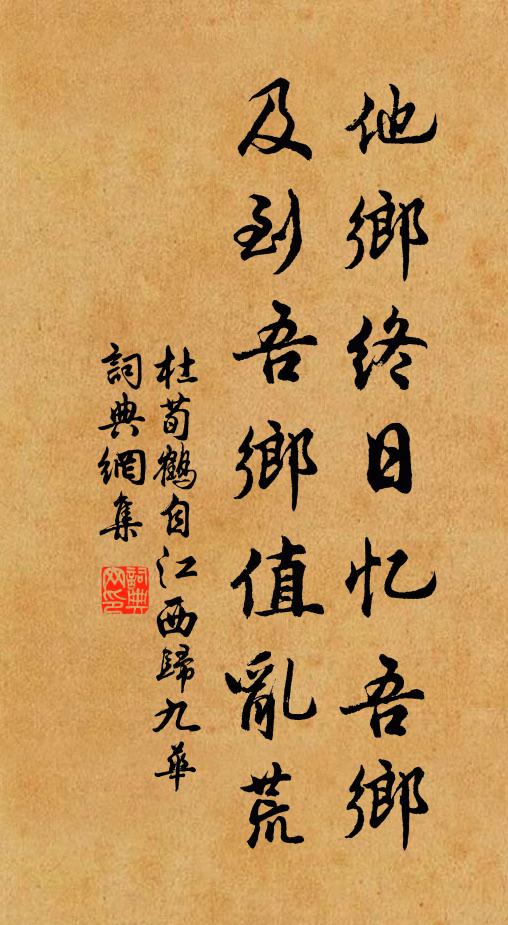 他鄉終日忆吾鄉
及到吾鄉值亂荒
杜荀鶴自江西歸九華
詞典網集
詞典网印